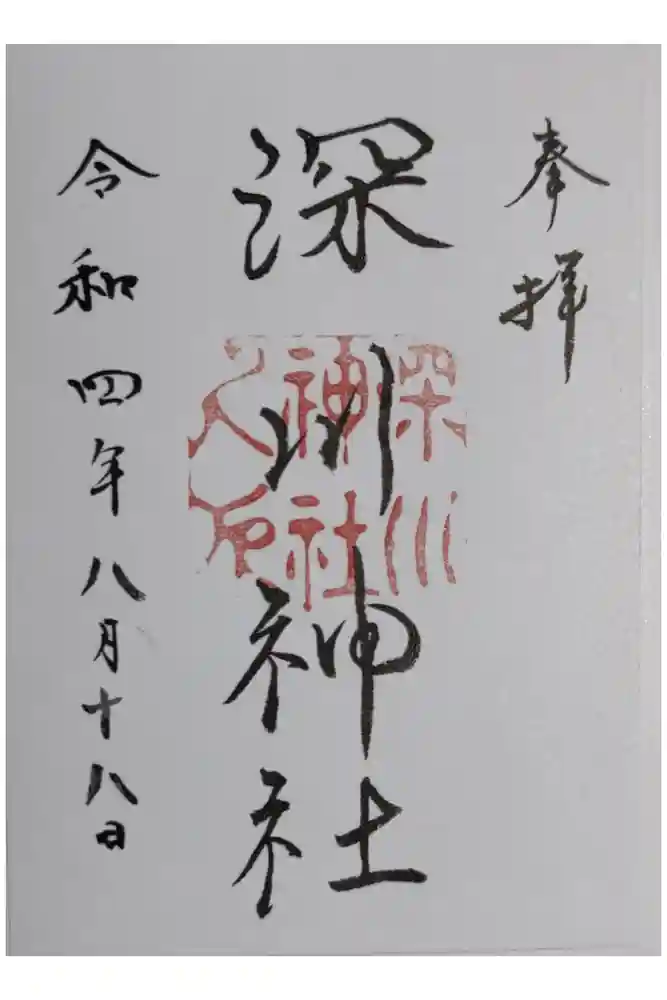 奉拝
深川神社
深川
神社
令和四年八月十八日